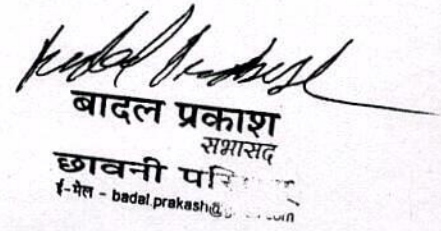 बादल प्रकाश
सभासद
छावनी
ई-मेल - badal.prakash@